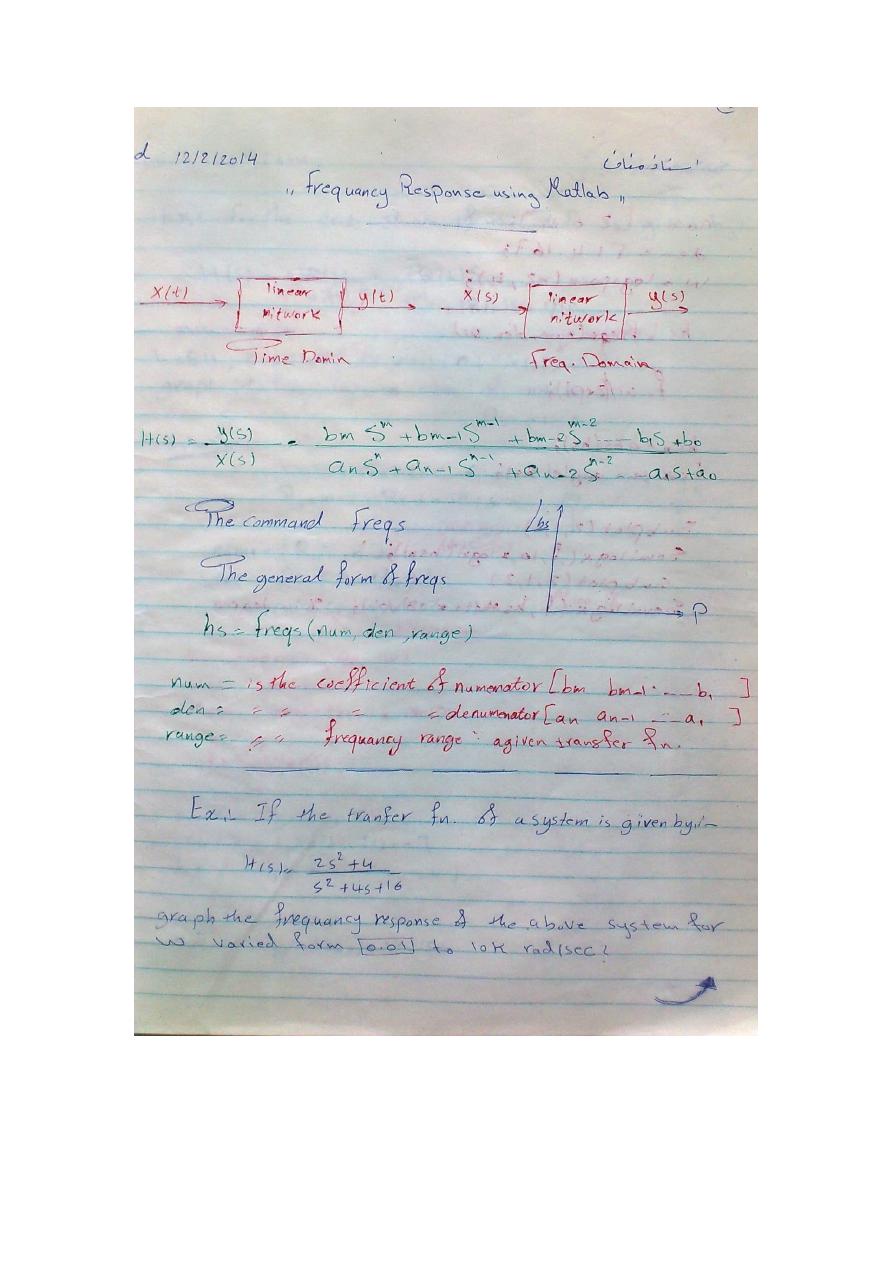 d 12/2/2014 استاذ مناف
,, Frequancy Response using Matlab ,,
X(t) linear nitwork y(t) X(s) linear nitwork y(s)
Time Domin Freq. Domain
H(s) = y(s) / X(s) = bm S^m + bm-1 S^m-1 + bm-2 S^m-2 --- b1S + b0 / an S^n + an-1 S^n-1 + an-2 S^n-2 --- a1S + a0
The command Freqs hs
The general form of freqs
P
hs = freqs (num, den, range)
num = is the coefficient of numenator [bm bm-1 --- b1 ]
den = = = = = denumenator [an an-1 --- a1 ]
range = = = frequancy range : agiven transfer fn.
Ex:- If the tranfer fn. of a system is given by:-
H(s) = 2s²+4 / s²+4s+16
graph the frequancy response of the above system for
w varied form [0.01] to 10K rad/sec?